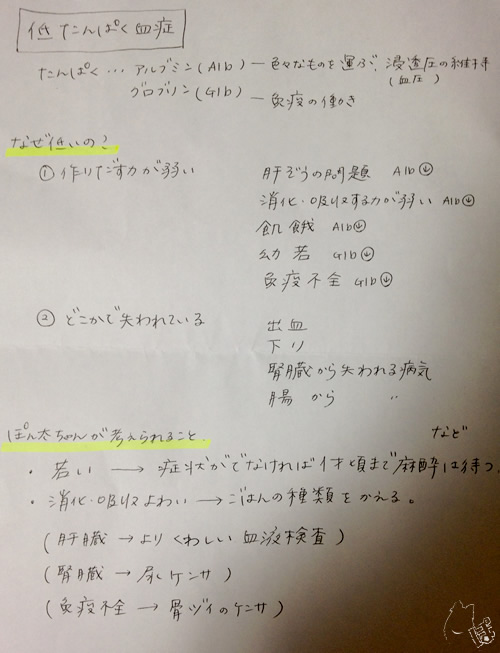 低たんぱく血症
たんぱく … アルブミン(Alb) ― 色々なものを運ぶ、浸透圧の維持
(血圧)
グロブリン(Glb) ― 免疫の働き
なぜ低いの?
① 作りだす力が弱い 肝ぞうの問題 Alb↓
消化・吸収する力が弱い Alb↓
飢餓 Alb↓
幼若 Glb↓
免疫不全 Glb↓
② どこかで失われている 出血
下り
腎臓から失われる病気
腸から 〃
など
ぽん太ちゃんが考えられること
・若い → 症状がでなければ1才頃まで麻酔は待つ。
・消化・吸収よわい → ごはんの種類をかえる。
(肝臓 → よりくわしい血液検査)
(腎臓 → 尿ケンサ)
(免疫不全 → 骨ズイのケンサ)